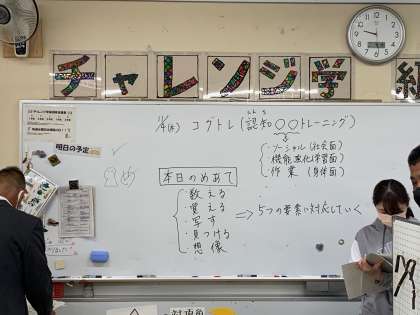 チャレンジ学
11/4(木) コグトレ(認知〇〇トレーニング)
にんち
・ソーシャル(社会面)
・機能強化(学習面)
・作業(身体面)
明日の予定
め
本日のめあて
・数える
・覚える
・写す
・見つける
・想像
⇒5つの要素に対応していく